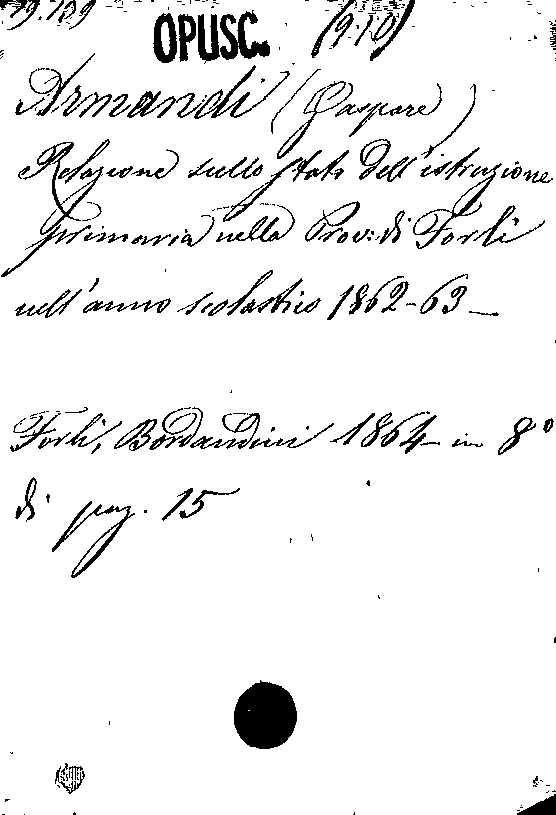 19.109 OPUSC. (9.10)
Armandi (Gaspare)
Relazione sullo stato dell'istruzione
primaria nella Prov: di Forlì
nell'anno scolastico 1862-63 —
Forlì, Bordandini 1864 — in 8°
di pag. 15